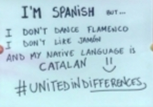 I'M SPANISH BUT...
I DON'T DANCE FLAMENCO
I DON'T LIKE JAMÓN
AND MY NATIVE LANGUAGE IS
CATALAN
#UNITEDINDIFFERENCES